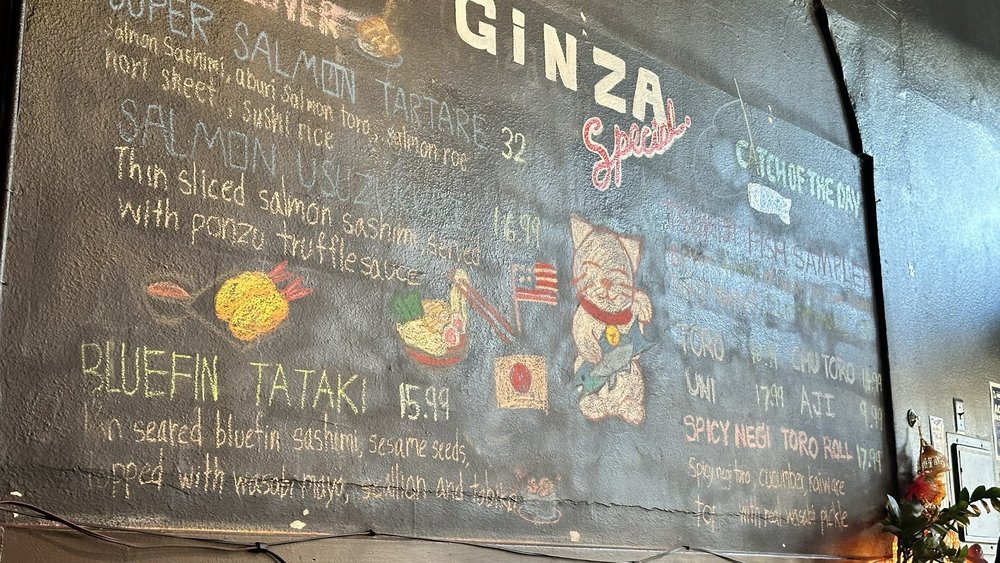 GiNZA
Special
SUPER SALMON TARTARE 32
Salmon Sashimi, aburi salmon toro, salmon roe
nori sheet, sushi rice
SALMON USUZU 16.99
Thin sliced salmon sashimi served
with ponzu truffle sauce
BLUEFIN TATAKI 15.99
seared bluefin sashimi, sesame seeds,
with wasabi mayo, scallion and tobiko
CATCH OF THE DAY
FISH SAMPLER
TORO CHU TORO
UNI 17.99 AJI 9.99
SPICY NEGI TORO ROLL 17.99
Spicy negi toro, cucumber, kaiware
with real wasabi pickle